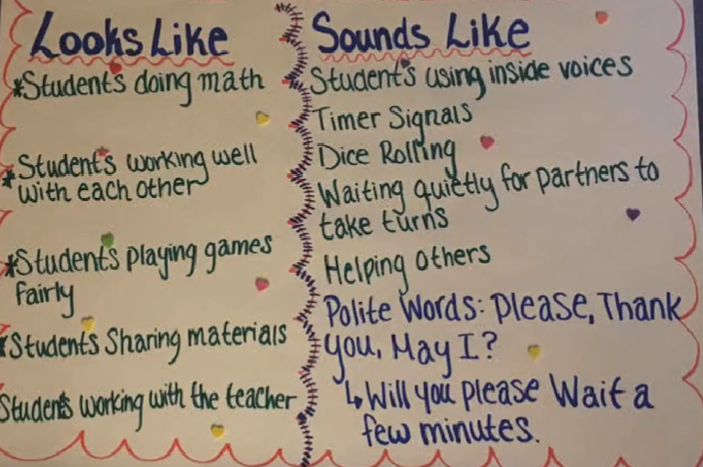 Looks Like
*Student's doing math
*Student's working well
with each other
*Student's playing games
fairly
*Students Sharing materials
Students working with the teacher
Sounds Like
Student's using inside voices
Timer Signals
Dice Rolling
Waiting quietly for partners to
take turns
Helping others
Polite Words: Please, Thank
you, May I?
↳Will you please Wait a
few minutes.